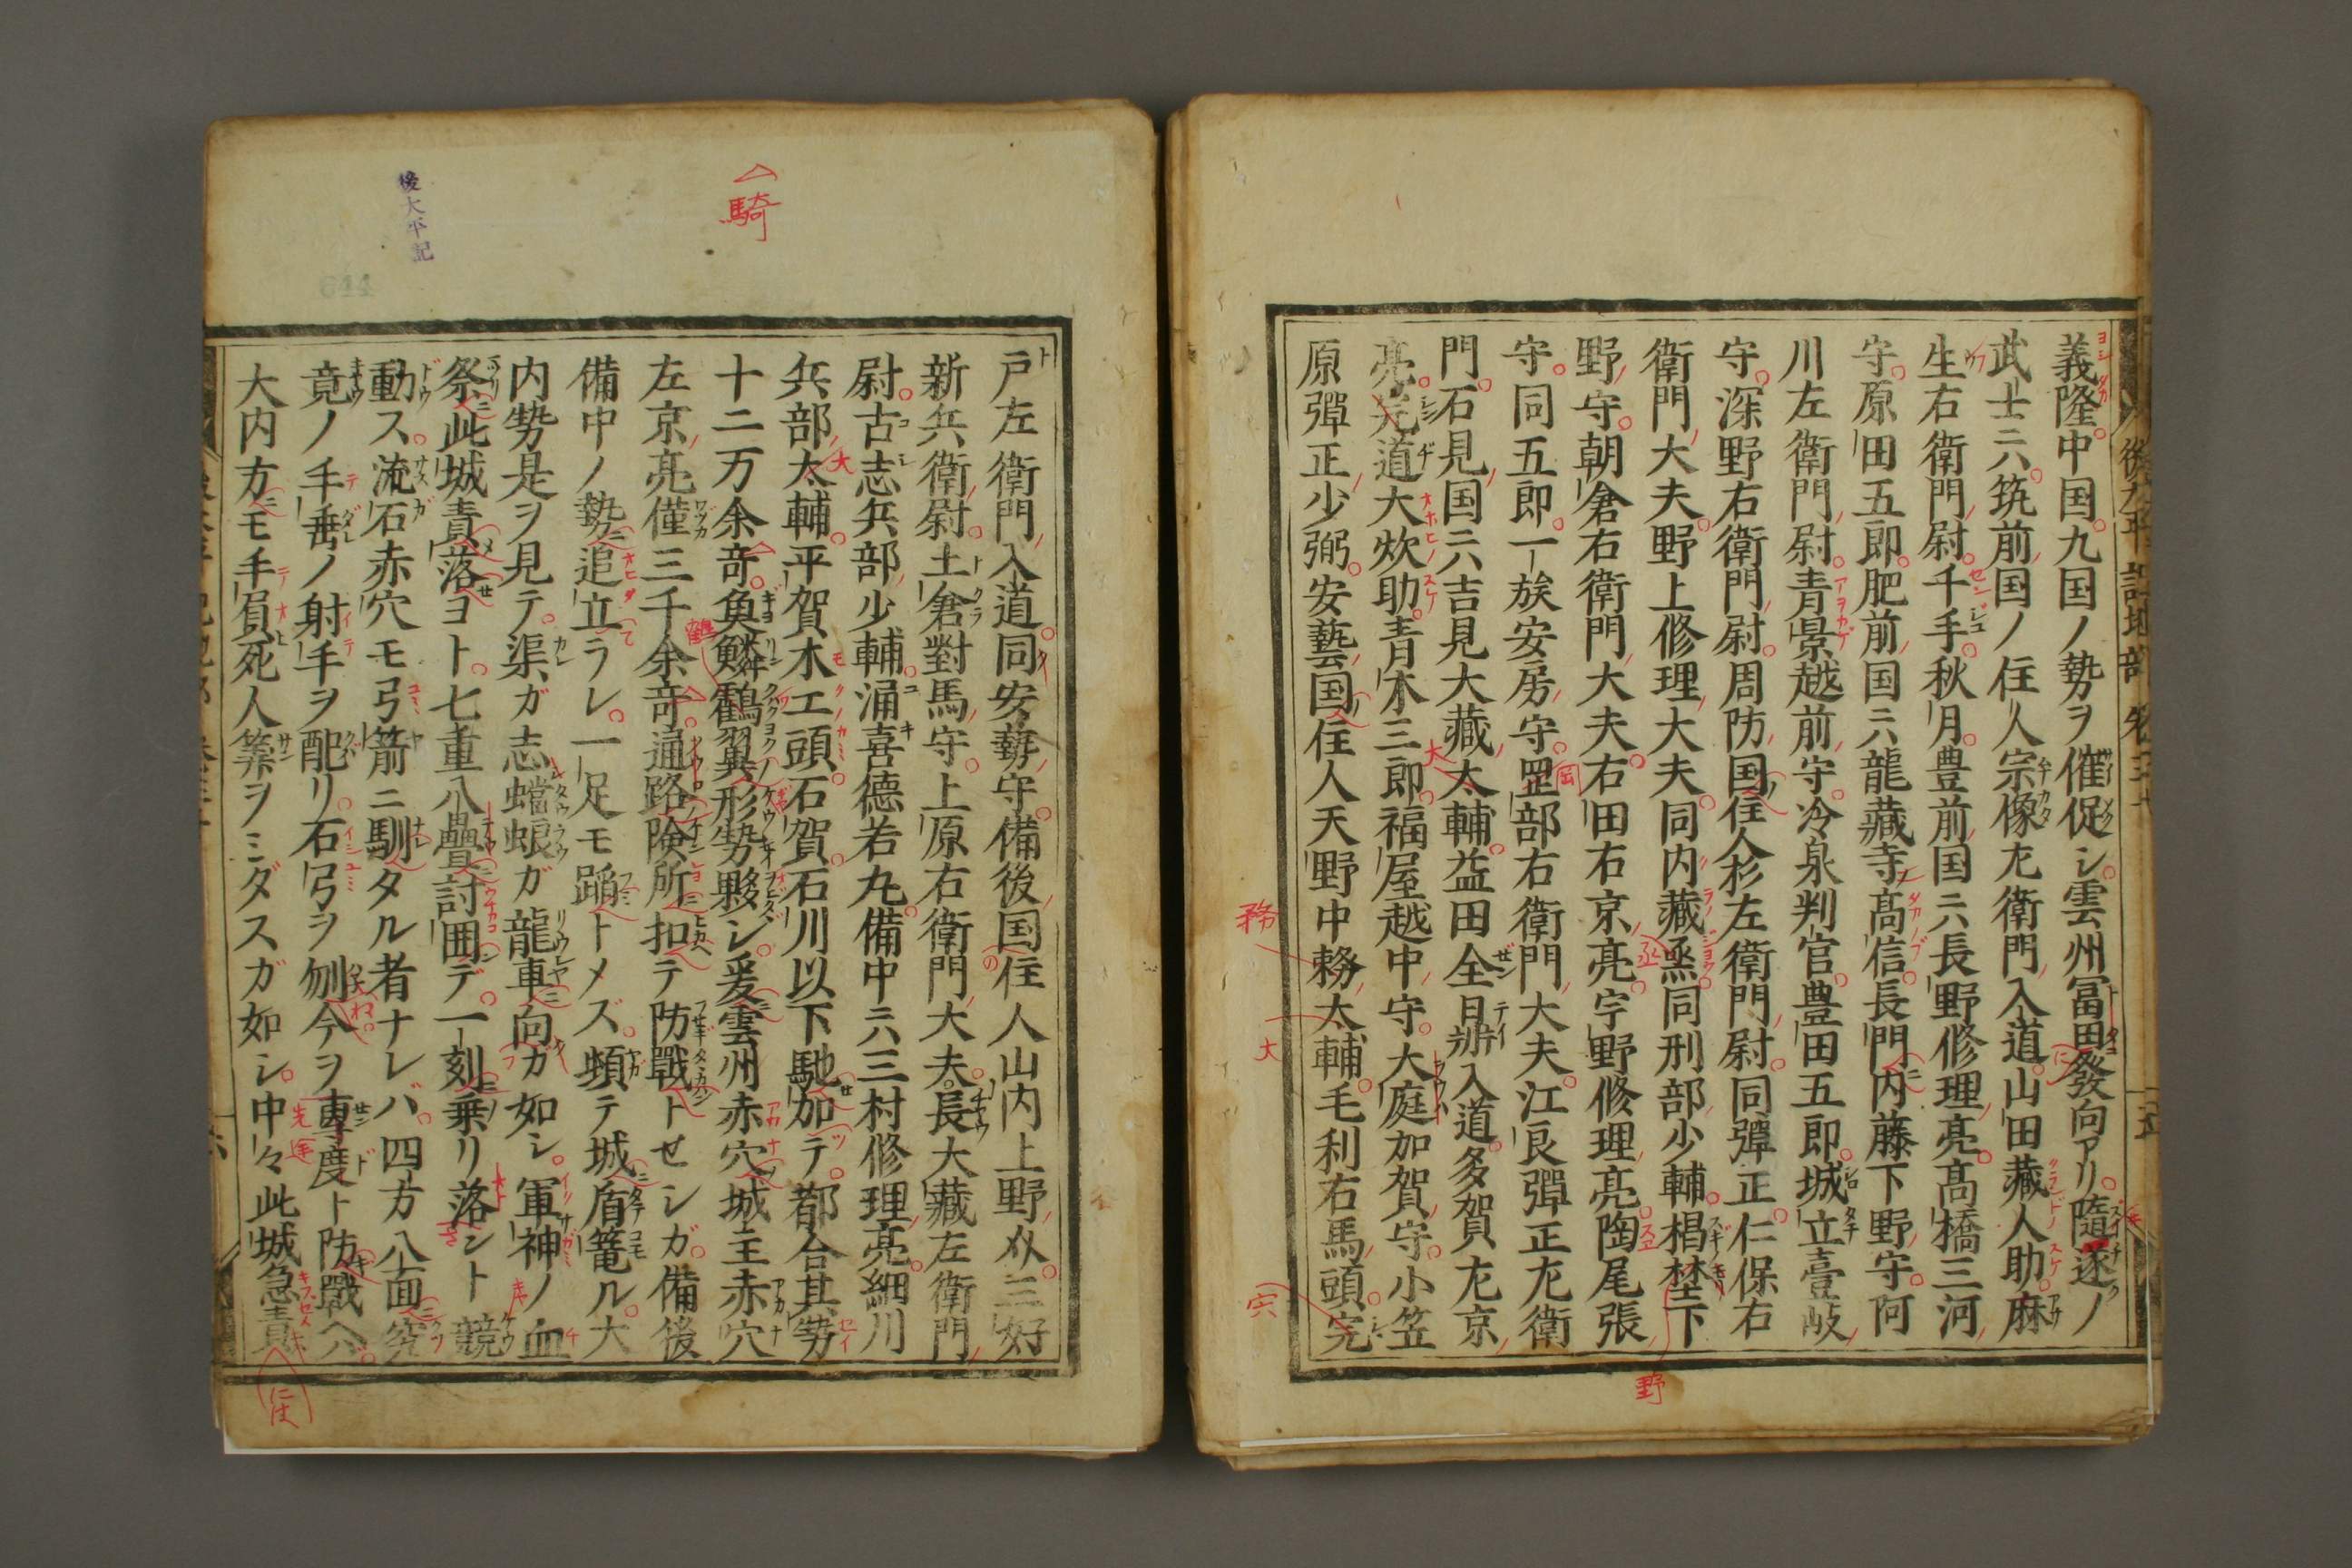 義隆中国九国ノ勢ヲ催促シ雲州冨田發向アリ隨逐ノ
武士ニハ筑前国ノ住人宗像左衛門入道山田藏人助麻
生右衛門尉千手秋月豊前国ニハ長野修理亮髙橋三河
守原田五郎肥前国ニハ龍藏寺髙信長門内藤下野守阿
川左衛門尉青景越前守冷泉判官豊田五郎城立壹岐
守深野右衛門尉周防国住人杉左衛門尉同彈正仁保右
衛門大夫野上修理大夫同内藏烝同刑部少輔椙埜下
野守朝倉右衛門大夫右田右京亮宇野修理亮陶尾張
守同五郎一族安房守罡部右衛門大夫江良彈正左衛
門石見国ニハ吉見大藏太輔益田全日辨入道多賀左京
亮完道大炊助青木三郎福屋越中守大庭加賀守小笠
原彈正少弼安藝国住人天野中務太輔毛利右馬頭完
後太平記地部 卷
戸左衛門入道同安藝守備後国住人山内上野介三好
新兵衛尉土倉對馬守上原右衛門大夫長大藏左衛門
尉古志兵部少輔涌喜德若丸備中ニハ三村修理亮細川
兵部太輔平賀木工頭石賀石川以下馳加テ都合其勢
十二万余竒魚鱗鶴翼形勢夥シ爰雲州赤穴城主赤穴
左京亮僅三千余竒通路険所扣テ防戰トセシガ備後
備中ノ勢追立ラレ一足モ蹈トメズ頻テ城盾篭ル大
内勢是ヲ見テ渠ガ志蟷蜋ガ龍車向カ如シ軍神ノ血
祭此城責落ヨト七重八疊討囲デ一刻乗リ落ント競
動ス流石赤穴モ弓箭ニ馴タル者ナレバ四方八面究
竟ノ手垂ノ射手ヲ配リ石弓ヲ刎今ヲ專度ト防戰ヘバ
大内方モ手負死人筭ヲミダスガ如シ中々此城急責
騎
後太平記
644
務
大
宍
野
には